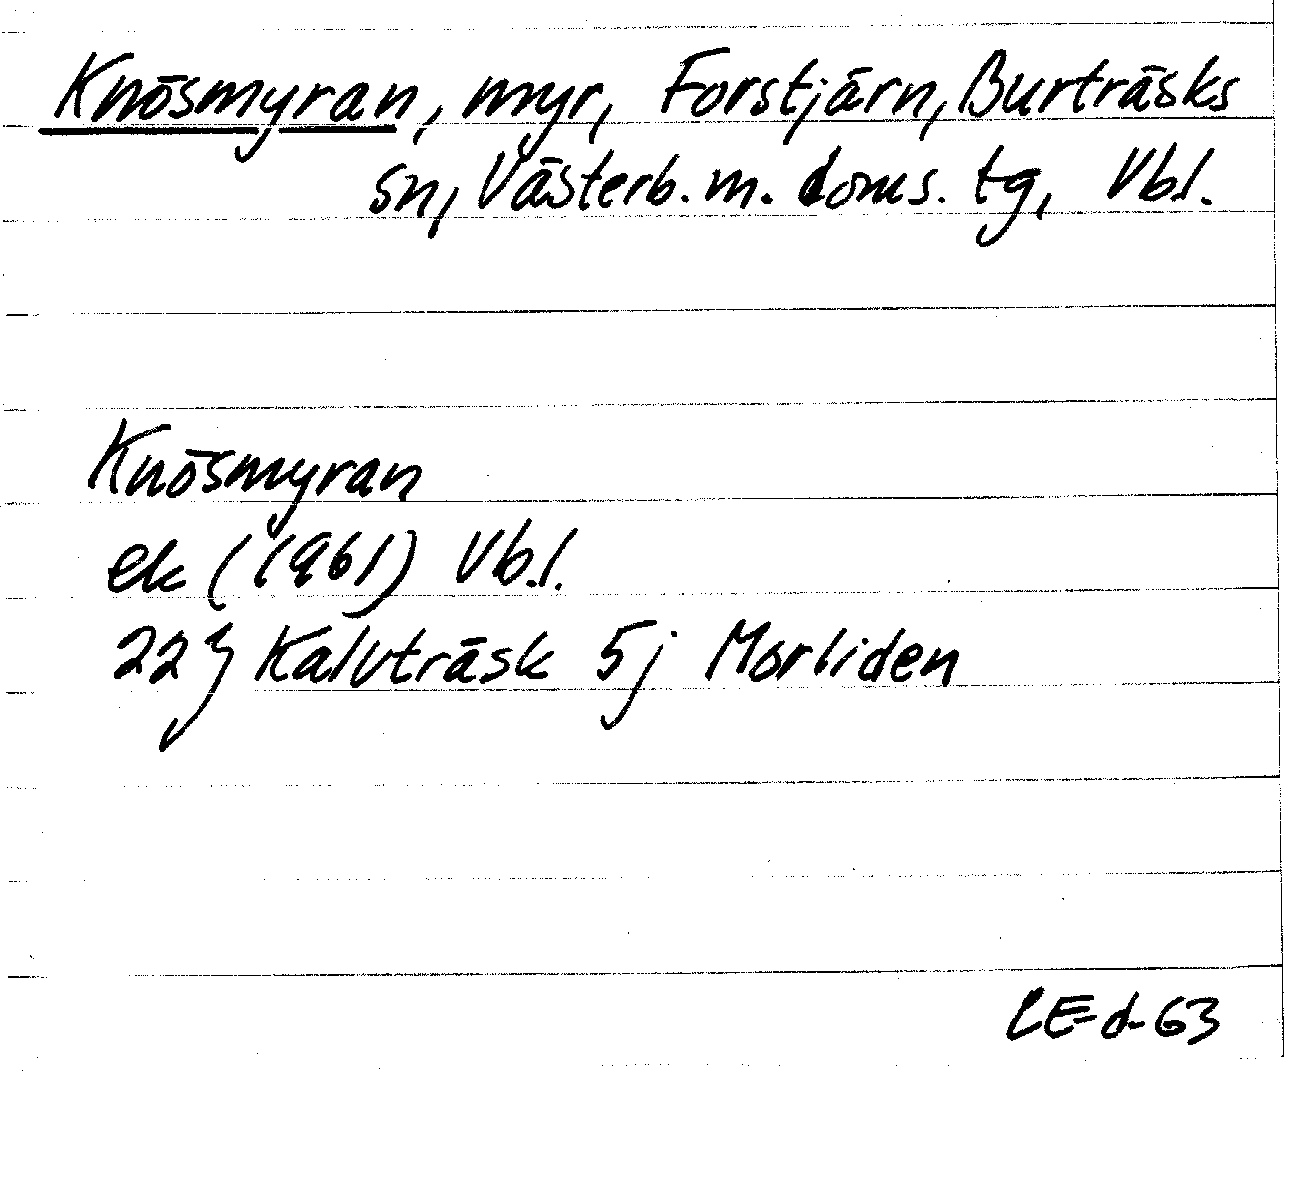 Knösmyran, myr, Forstjärn, Burträsks
sn, Västerb. m. doms. tg, Vbl.
Knösmyran
ek (1961) Vb.l.
22J Kalvträsk 5j Morliden
LEd-63